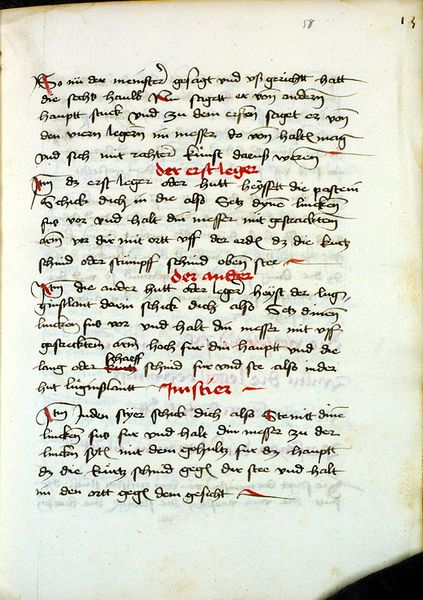 13
So nü der meinster gesagt vnd vß gericht hatt
die sechs haulb Nun sagett er von andern
hauptt stuck vnd zu dem ersten saget er von
den viern legern im messer do von halten mag
vnd sich mit rechter kunst daruß weren
der erst leger
Itm dz erst leger oder hutt heyssett die pastein
Schick dich in die also Setz dyne lincken
fuß vor vnd halt din messer mit gestracktem
arm vor dir mit ortt vff der erden dz die kurtz
schnid oder stumpff schnid oben stee
der ander
Itm die ander hutt oder leger heyst der lug
ginslant dorin schick dich also Setz dinen
lincken fuß vor vnd halt din messer mit vff
gestrecktem arm hoch für din hauptt vnd die
lang oder scharff schnid fur vnd ste also inder
hut luginslantt Im stier
Itm Inden stiger schick dich also Stenitt dine
lincken fuß fur vnd halt din messer zu der
lincken syten mit dem gehultz fur dz hauptt
dz die kurtz schnid gegen dir stee vnd halt
im den ortt gegen dem gesicht